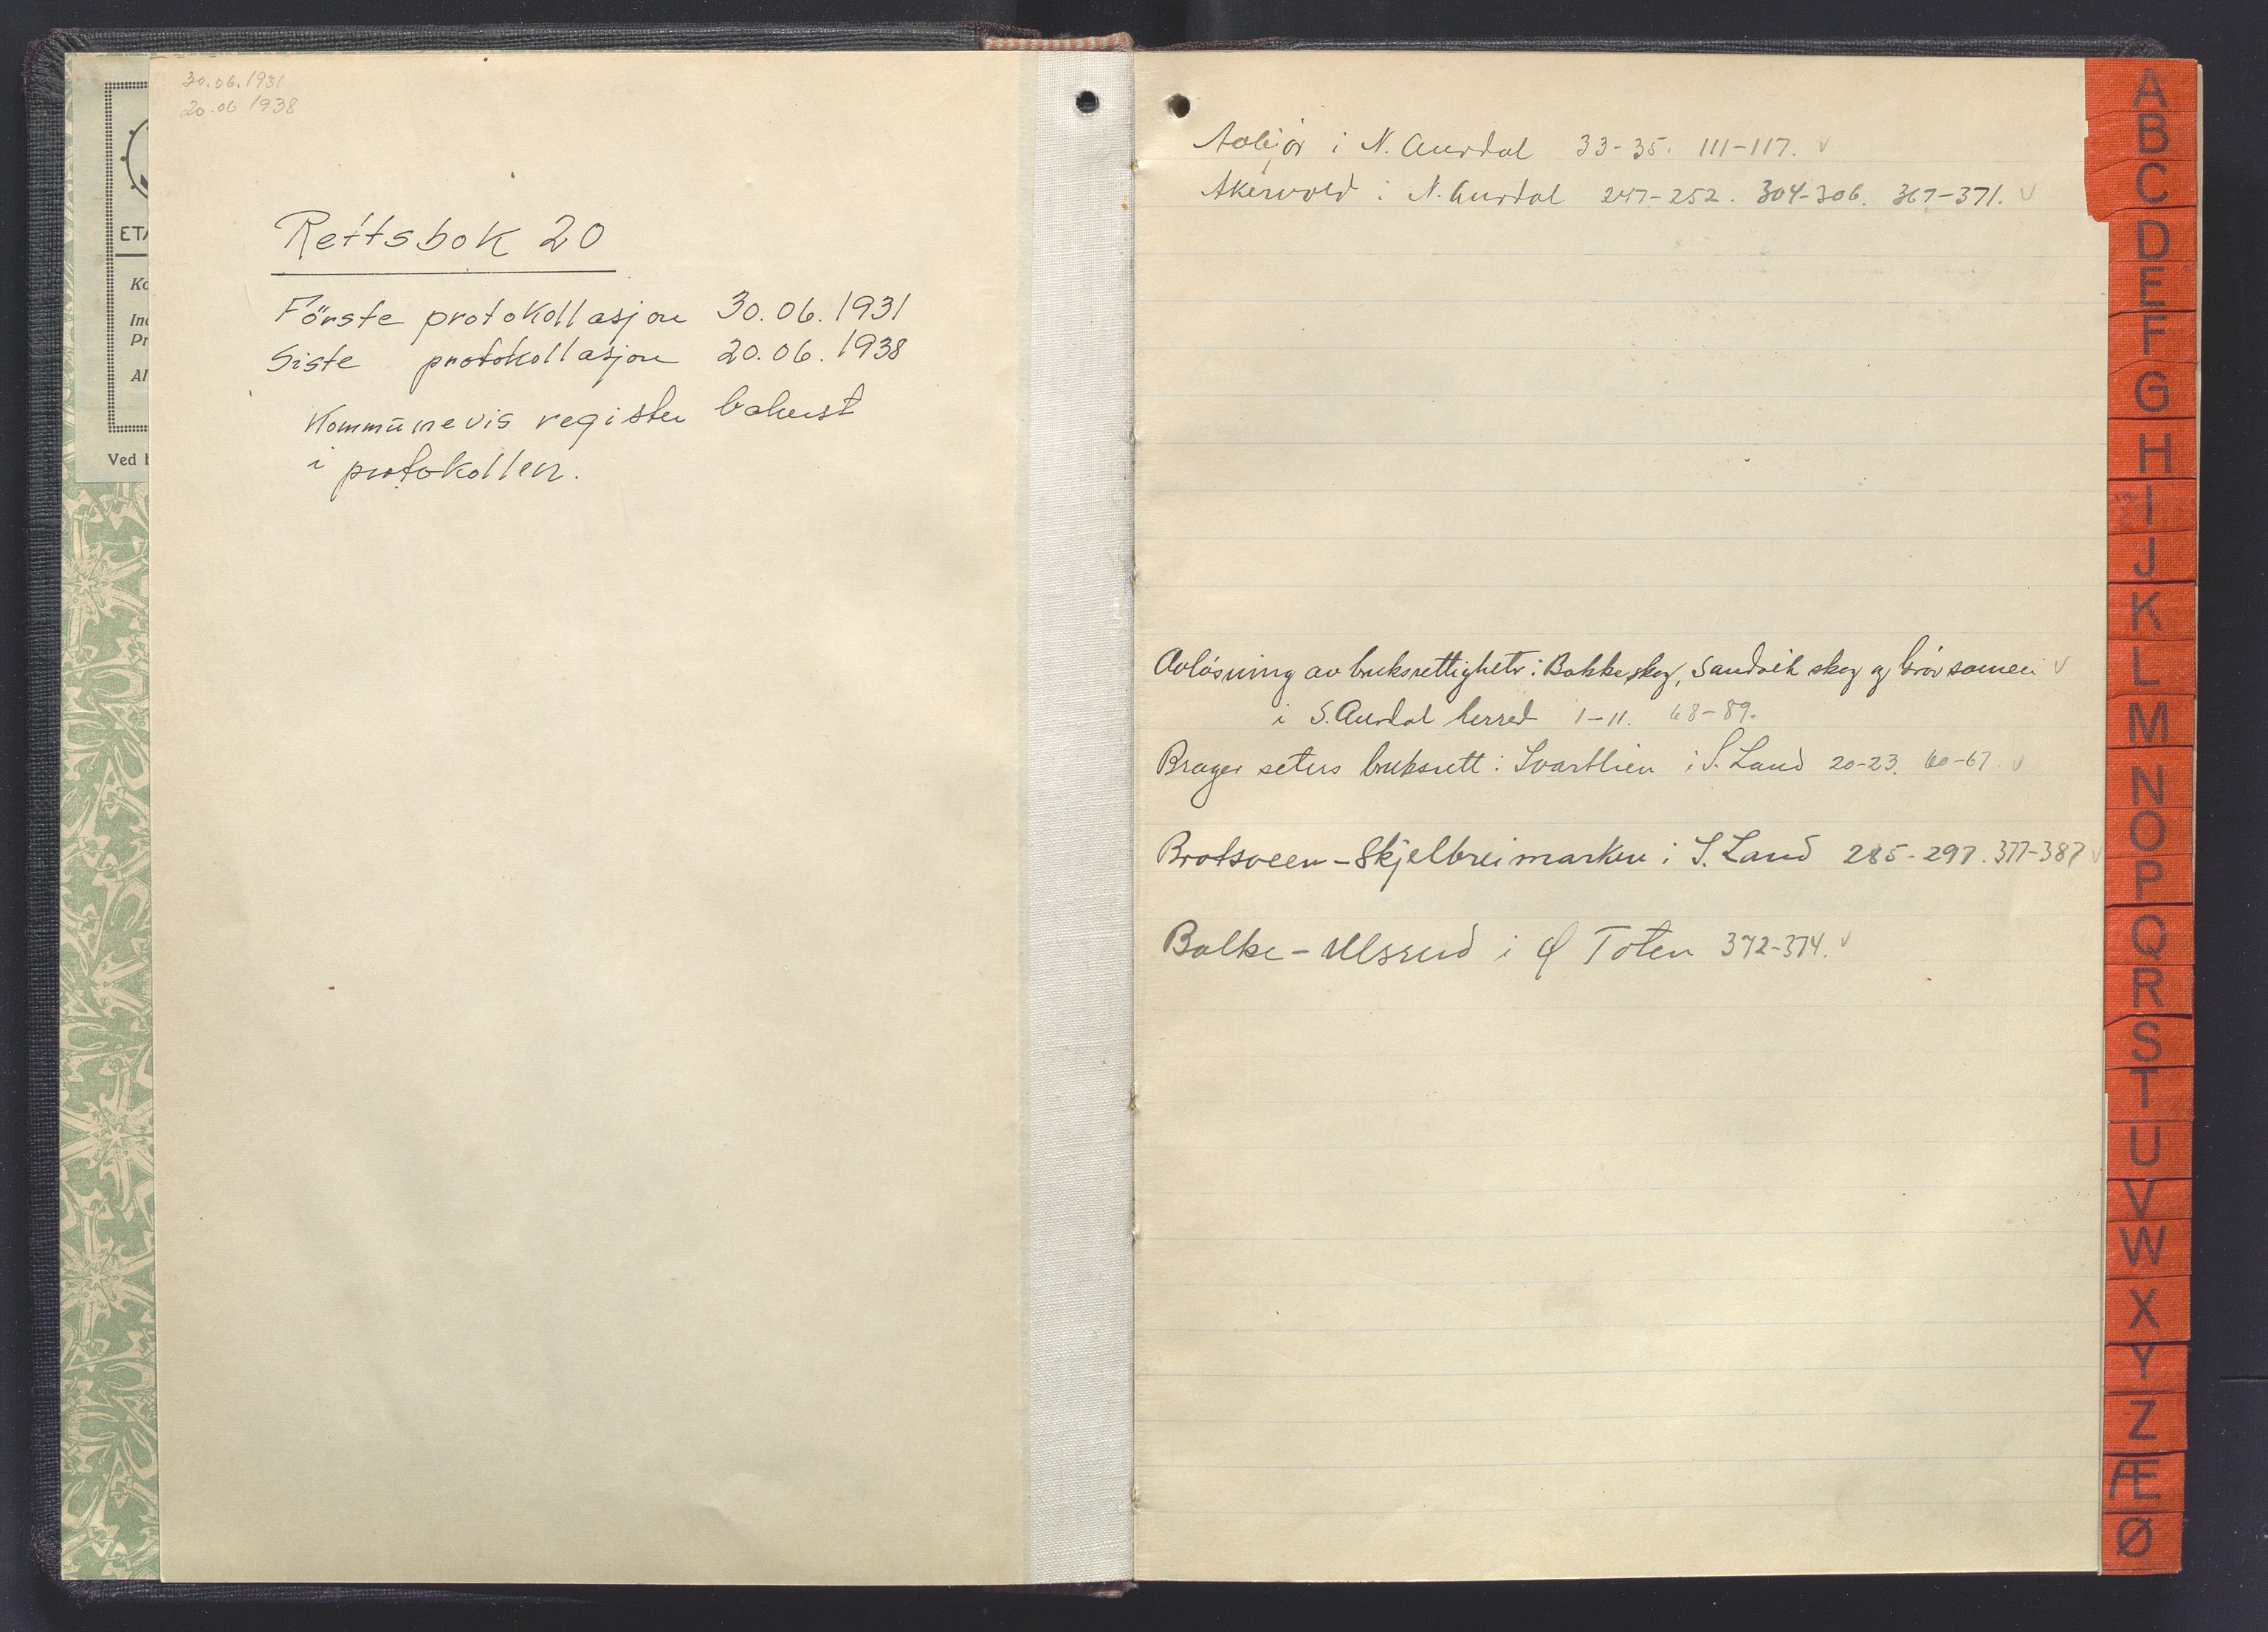 30.06.1931
20.06 1938
ETA
Ko
Inc
Pr
Al
Ved b
Rettsbok 20
Förste protokollasjon 30.06.1931
Siste protokollasjon 20.06.1938
Kommunevis register bakerst
i protokollen.
Aabjør i N. Aurdal 33-35. 111-117. v
Akervold i N. Aurdal 247-252. 304-306. 367-371. v
Avløsning av bruksrettigheter i Bakke skog, Sandvik skog og v
i S. Aurdal herred 1-11. 68-89.
Brager seters bruksrett i Svartlien i S. Land 20-23. 60-67. v
Brotsveen-Skjelbreimarken i S. Land 285-297. 377-387 v
Balke-Ulsrud i Ø Toten 372-374. v
A
B
C
D
E
F
G
H
I
J
K
L
M
N
O
P
Q
R
S
T
U
V
W
X
Y
Z
Æ
Ø